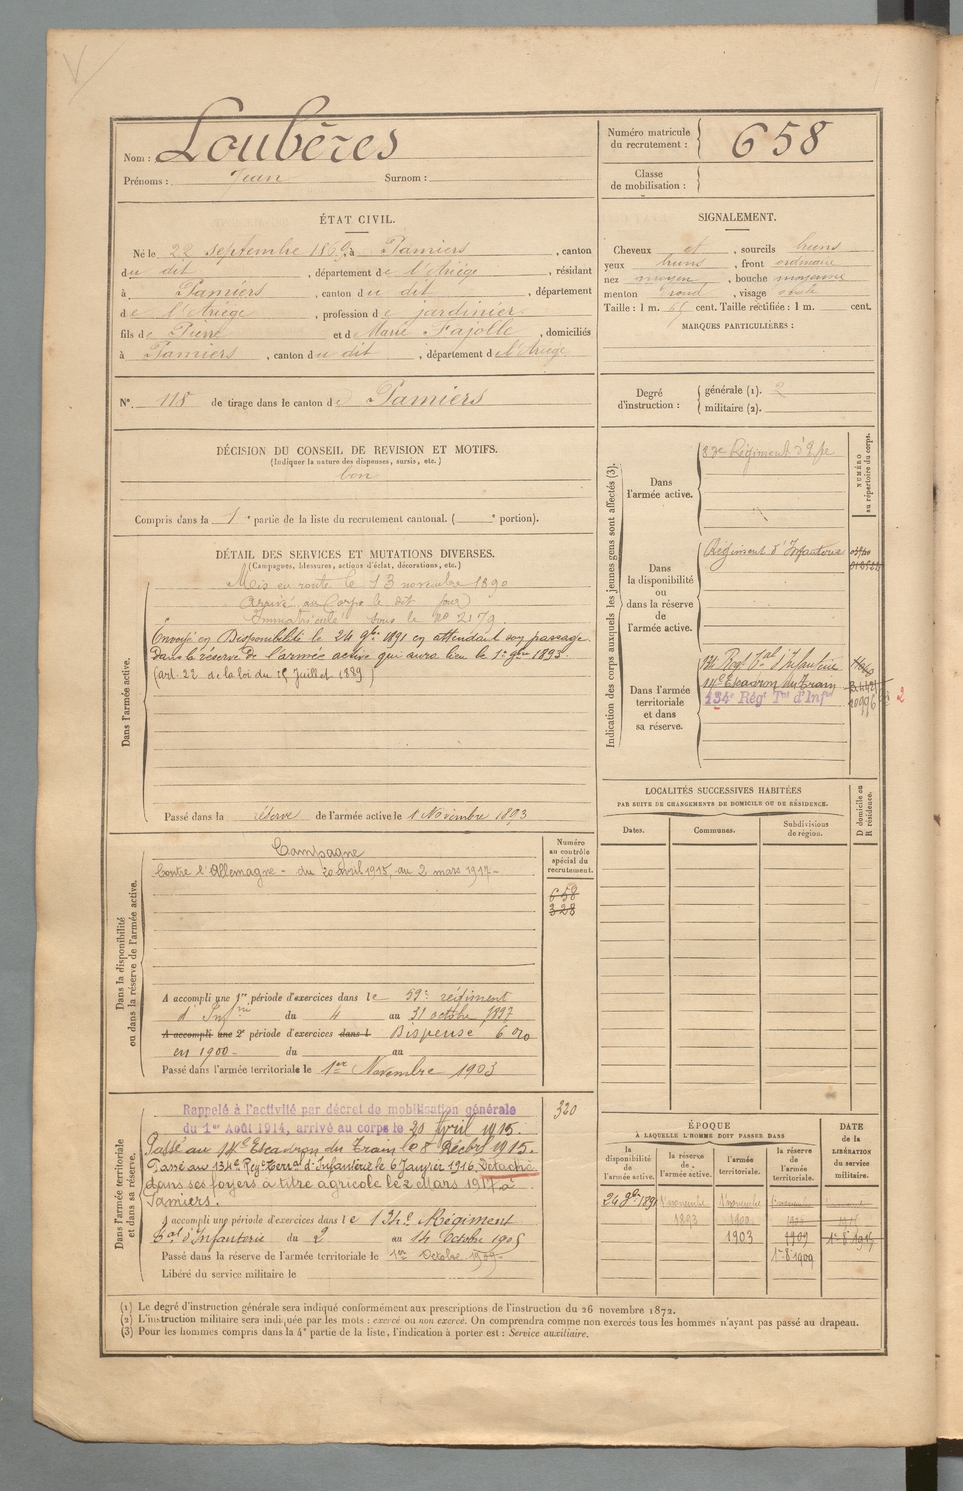 Nom : Loubères
Prénoms : Jean Surnom :
Numéro matricule du recrutement : 658
Classe de mobilisation :
ÉTAT CIVIL.
Né le 22 septembre 1869, à Pamiers, canton
du dit, département de l'Ariège, résidant
à Pamiers, canton du dit, département
de l'Ariège, profession de jardinier
fils de Pierre et de Marie Fajolle, domiciliés
à Pamiers, canton du dit, département de l'Ariège
N°. 118 de tirage dans le canton de Pamiers
SIGNALEMENT.
Cheveux et, sourcils bruns
yeux bruns, front ordinaire
nez moyen, bouche moyenne
menton rond, visage ovale
Taille : 1 m. cent. Taille rectifiée : 1 m. cent.
MARQUES PARTICULIÈRES :
Degré d'instruction : générale (1). 2
militaire (2).
DÉCISION DU CONSEIL DE REVISION ET MOTIFS.
(Indiquer la nature des dispenses, sursis, etc.)
bon
Compris dans la 1e partie de la liste du recrutement cantonal. ( e portion).
DÉTAIL DES SERVICES ET MUTATIONS DIVERSES.
(Campagnes, blessures, actions d'éclat, décorations, etc.)
Dans l'armée active.
Mis en route le 13 novembre 1890
Arrivé au Corps le dit jour
Immatriculé sous le n° 2179.
Envoyé en Disponibilité le 24 9bre 1891 en attendant son passage
Dans la réserve de l'armée active qui aura lieu le 1er 9bre 1893.
(art. 22 de la loi du 15 Juillet 1889.)
Passé dans la réserve de l'armée active le 1 Novembre 1893
Indication des corps auxquels les jeunes gens sont affectés (3).
NUMÉRO au répertoire du corps.
Dans l'armée active.
83e Régiment d'Ifie
Dans la disponibilité ou dans la réserve de l'armée active.
Régiment d'Infanterie
Dans l'armée territoriale et dans sa réserve.
134 Régt tal d'Infanterie
14e Escadron du Train
134e Régt Tal d'Inf
2
LOCALITÉS SUCCESSIVES HABITÉES
PAR SUITE DE CHANGEMENTS DE DOMICILE OU DE RÉSIDENCE.
Dates. Communes. Subdivisions de région.
D domicile ou R résidence.
Dans la disponibilité ou dans la réserve de l'armée active.
Numéro au contrôle spécial du recrutement.
658
328
Campagne
Contre l'Allemagne - du 20 avril 1915, au 2 mars 1917 -
A accompli une 1re période d'exercices dans le 59e régiment
d'Infrie du 4 au 31 octobre 1897
A accompli une 2e période d'exercices dans l Dispensé 6 0/0
en 1900 - du au
Passé dans l'armée territoriale le 1er Novembre 1903
Dans l'armée territoriale et dans sa réserve.
320
Rappelé à l'activité par décret de mobilisation générale
du 1er Août 1914, arrivé au corps le 20 Avril 1915.
Passé au 14e Escadron du Train le 8 Décbre 1915.
Passé au 134e Régt Terral d'Infanterie le 6 Janvier 1916, Détaché
dans ses foyers à titre agricole le 2 Mars 1917 à
Pamiers.
A accompli une période d'exercices dans le 134e Régiment
tal d'Infanterie du 2 au 14 Octobre 1905
Passé dans la réserve de l'armée territoriale le 1er Octobre 1909
Libéré du service militaire le
ÉPOQUE
À LAQUELLE L'HOMME DOIT PASSER DANS
la disponibilité de l'armée active.
la réserve de l'armée active.
l'armée territoriale.
la réserve de l'armée territoriale.
DATE de la LIBÉRATION du service militaire.
24 9bre 1891
1 novembre 1893
1 novembre 1900
1903
1909
1er 8bre 1909
(1) Le degré d'instruction générale sera indiqué conformément aux prescriptions de l'instruction du 26 novembre 1872.
(2) L'instruction militaire sera indiquée par les mots : exercé ou non exercé. On comprendra comme non exercés tous les hommes n'ayant pas passé au drapeau.
(3) Pour les hommes compris dans la 4e partie de la liste, l'indication à porter est : Service auxiliaire.